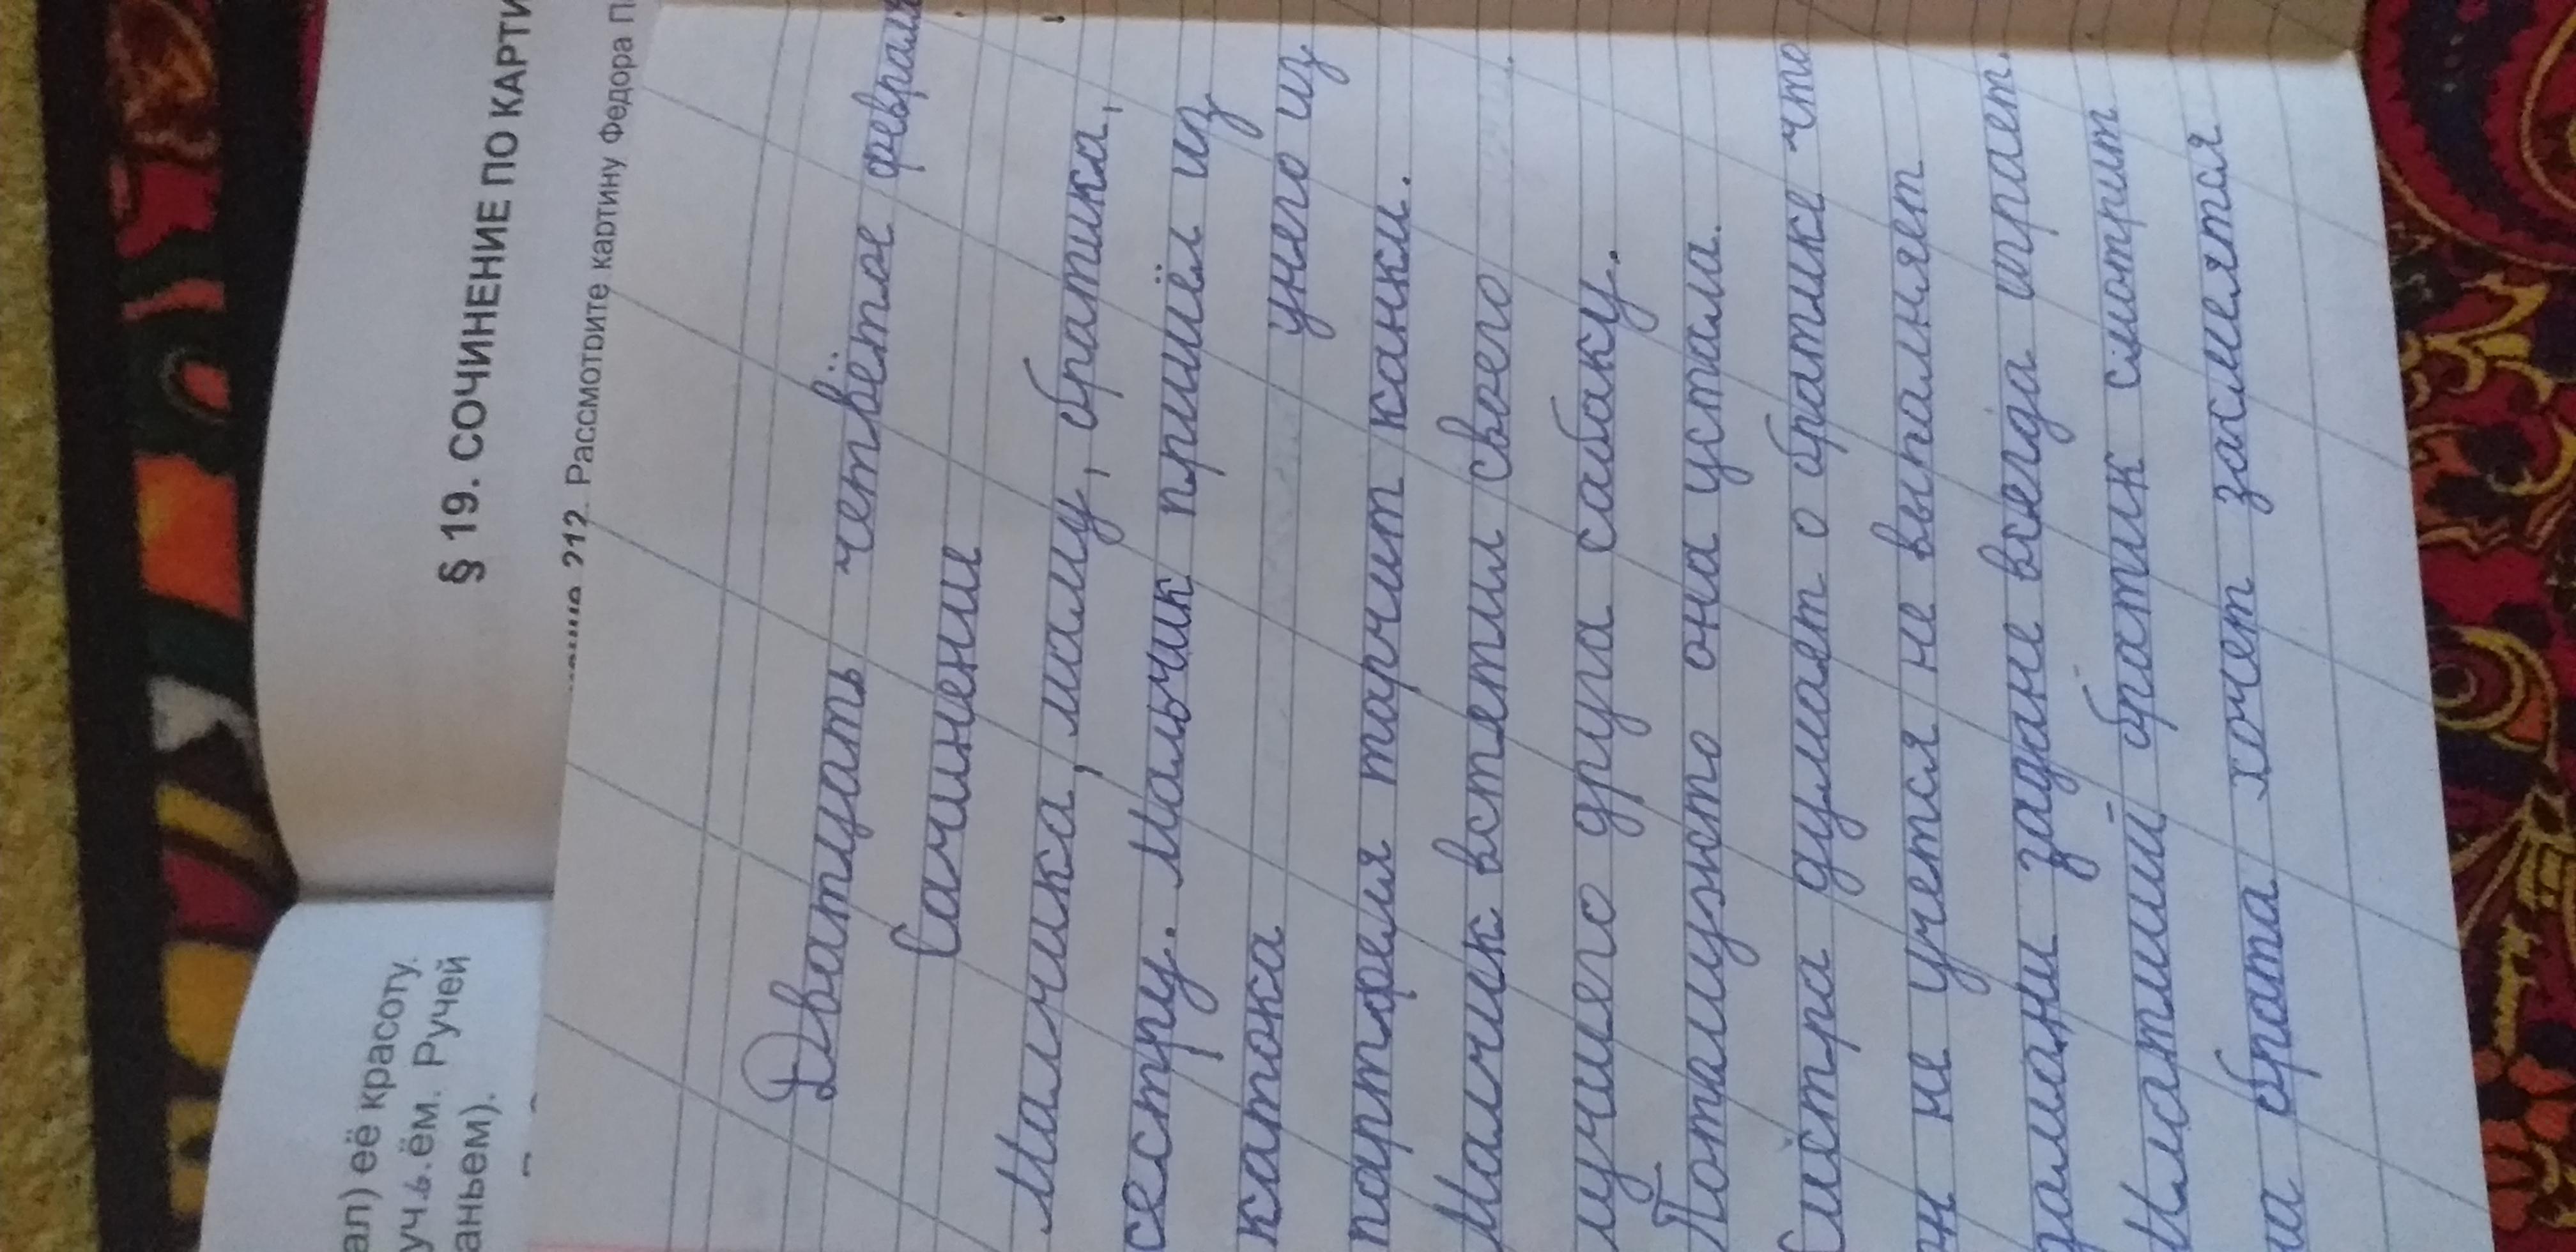 ал) её красоту.
уч.ь.ём. Ручей
аньем).
§ 19. СОЧИНЕНИЕ ПО КАРТИ
212. Рассмотрите картину Федора П
Дватцать четвётое февраля
Сачинении
Малчика, маму, братика,
сестру. Мальчик пришёл из
катока унего из
партфеля тарчит канки.
Малчик встятил своего
лучшего друга сабаку.
Поталмужто она устала.
Сместра думает о братике что
он не учется не выпалняет
дамани задане всегда играет.
Млатший братик смотрит
на брата хочет засмеятся